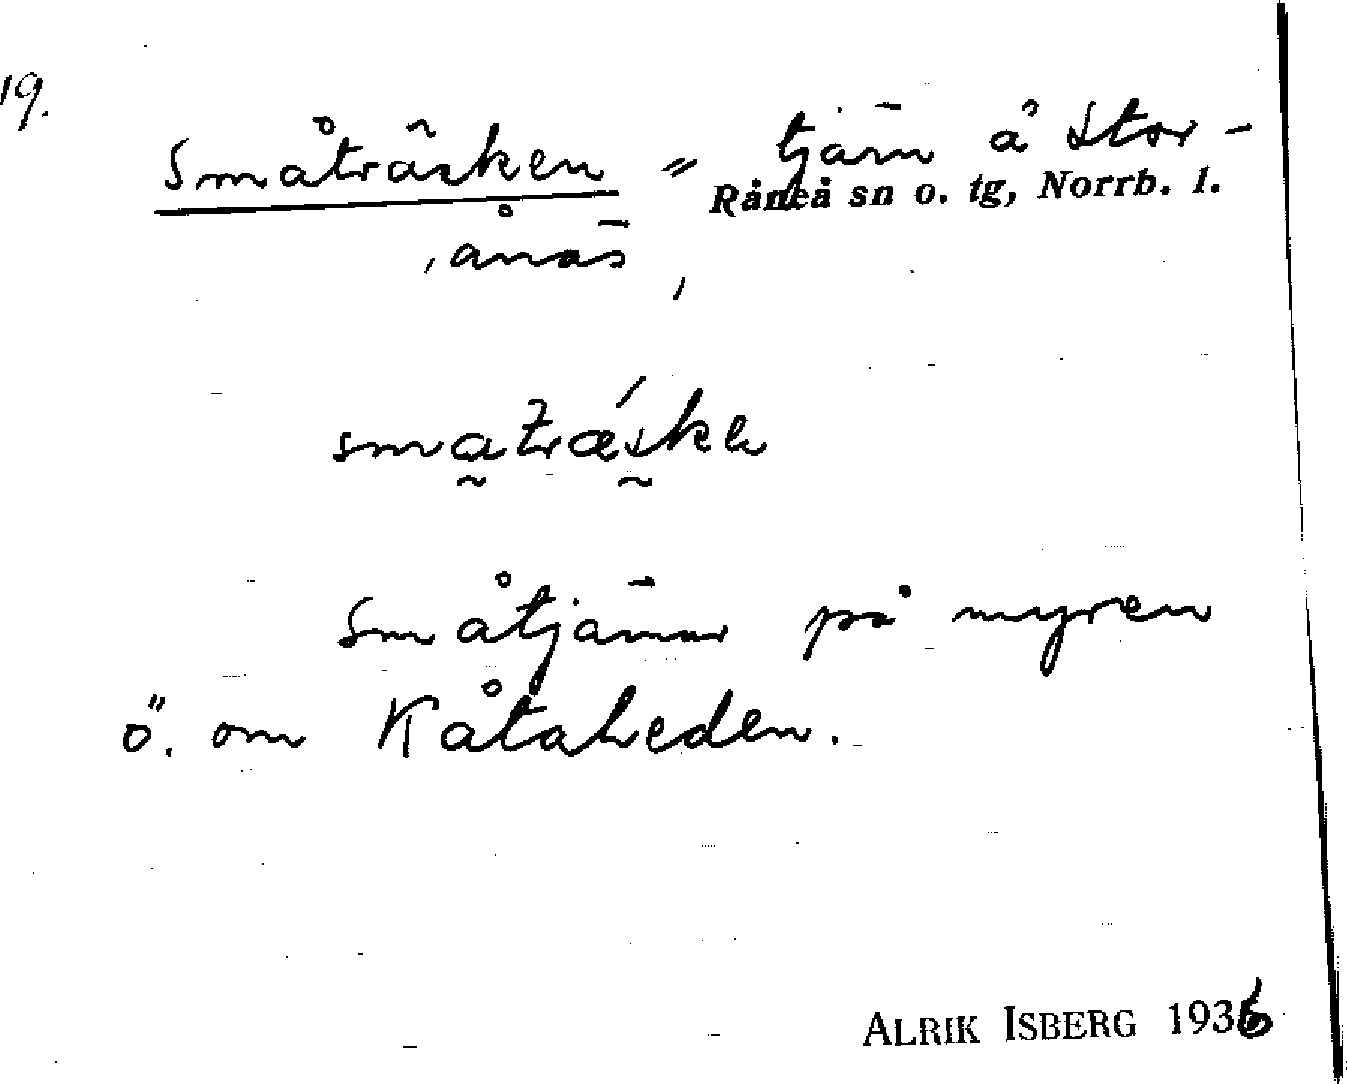 19.
Småträsken = tjärn å Stor-
Råneå sn o. tg, Norrb. l.
ånäs,
småtræske
Småtjärnar på myren
ö. om Kåtaheden.
ALRIK ISBERG 1936